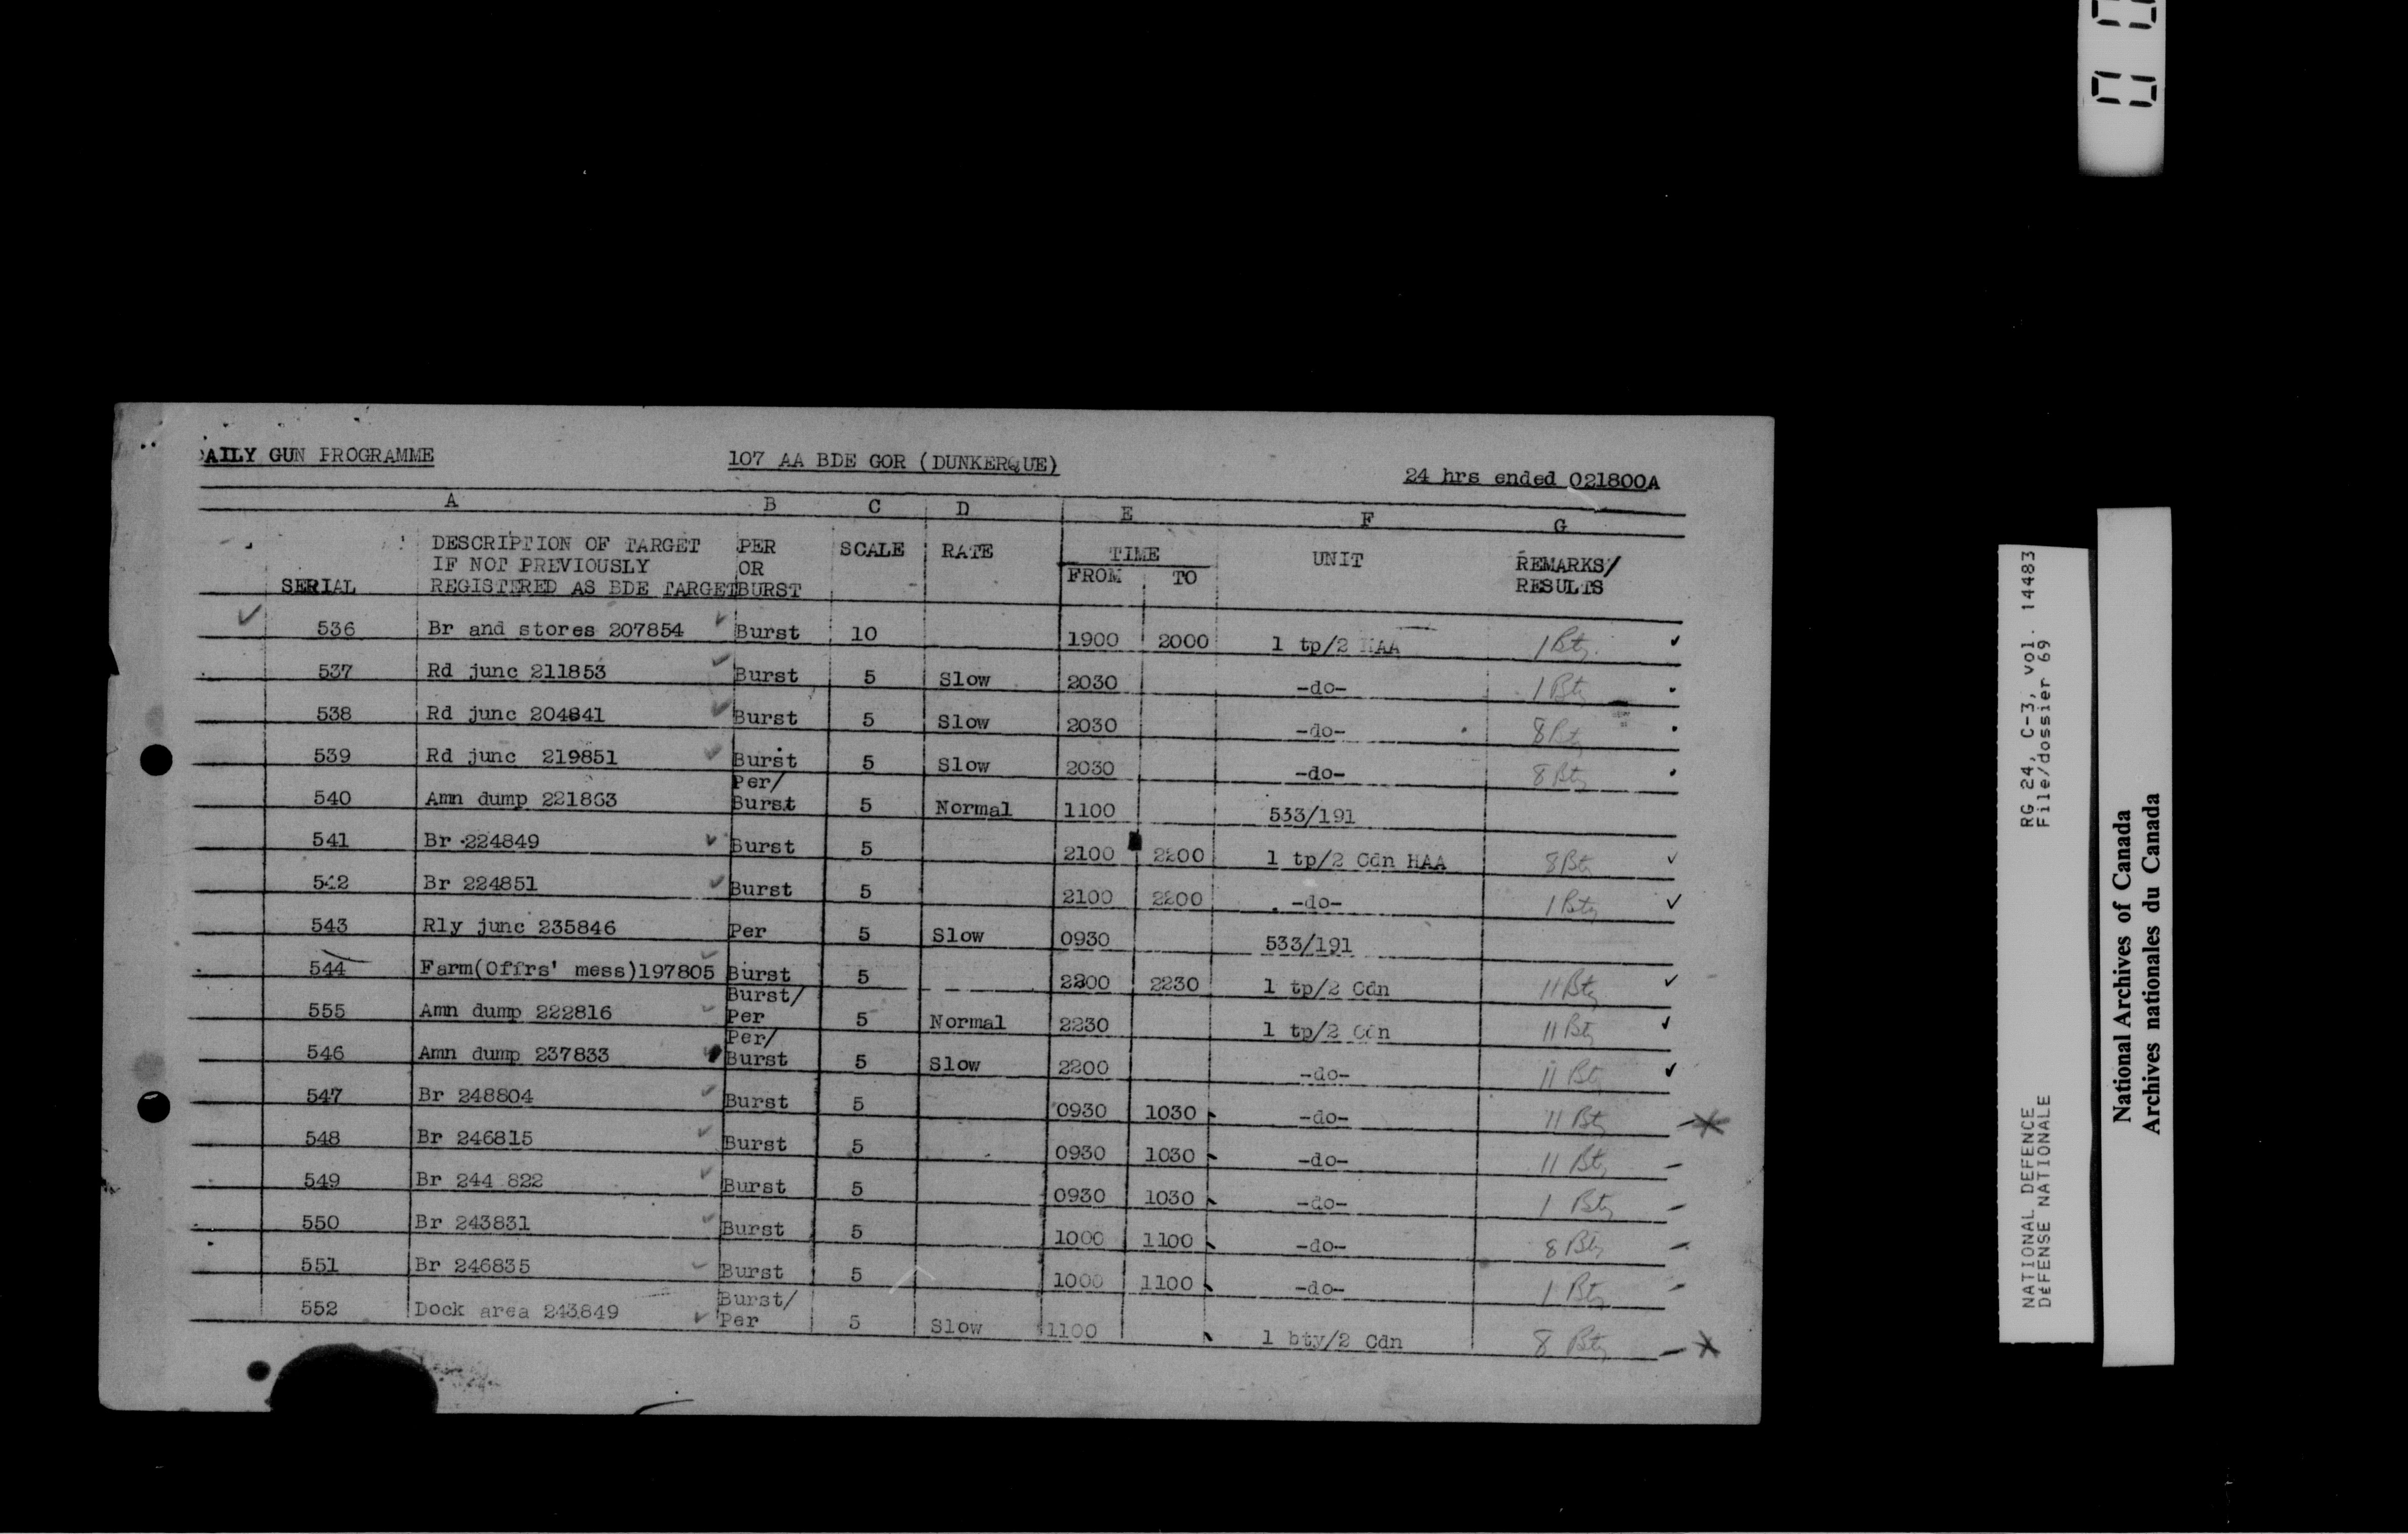 DAILY GUN PROGRAMME 107 AA BDE GOR (DUNKERQUE) 24 hrs ended 021800A
A B C D E F G
SERIAL DESCRIPTION OF TARGET IF NOT PREVIOUSLY REGISTERED AS BDE TARGET PER OR BURST SCALE RATE TIME FROM TO UNIT REMARKS/ RESULTS
536 Br and stores 207854 Burst 10 1900 2000 1 tp/2 HAA 1 Bty.
537 Rd junc 211853 Burst 5 Slow 2030 -do- 1 Bty
538 Rd junc 204841 Burst 5 Slow 2030 -do- 8 Bty
539 Rd junc 219851 Burst 5 Slow 2030 -do- 8 Bty
540 Amn dump 221863 Per/ Burst 5 Normal 1100 533/191
541 Br 224849 Burst 5 2100 2200 1 tp/2 Cdn HAA 8 Bty
542 Br 224851 Burst 5 2100 2200 -do- 1 Bty
543 Rly junc 235846 Per 5 Slow 0930 533/191
544 Farm(Offrs' mess)197805 Burst 5 2200 2230 1 tp/2 Cdn 11 Bty
555 Amn dump 222816 Burst/ Per 5 Normal 2230 1 tp/2 Cdn 11 Bty
546 Amn dump 237833 Per/ Burst 5 Slow 2200 -do- 11 Bty
547 Br 248804 Burst 5 0930 1030 -do- 11 Bty
548 Br 246815 Burst 5 0930 1030 -do- 11 Bty
549 Br 244 822 Burst 5 0930 1030 -do- 1 Bty
550 Br 243831 Burst 5 1000 1100 -do- 8 Bty
551 Br 246835 Burst 5 1000 1100 -do- 1 Bty
552 Dock area 243849 Burst/ Per 5 Slow 1100 1 bty/2 Cdn 8 Bty
NATIONAL DEFENCE RG 24, C-3, vol. 14483
DÉFENSE NATIONALE File/dossier 69
National Archives of Canada
Archives nationales du Canada